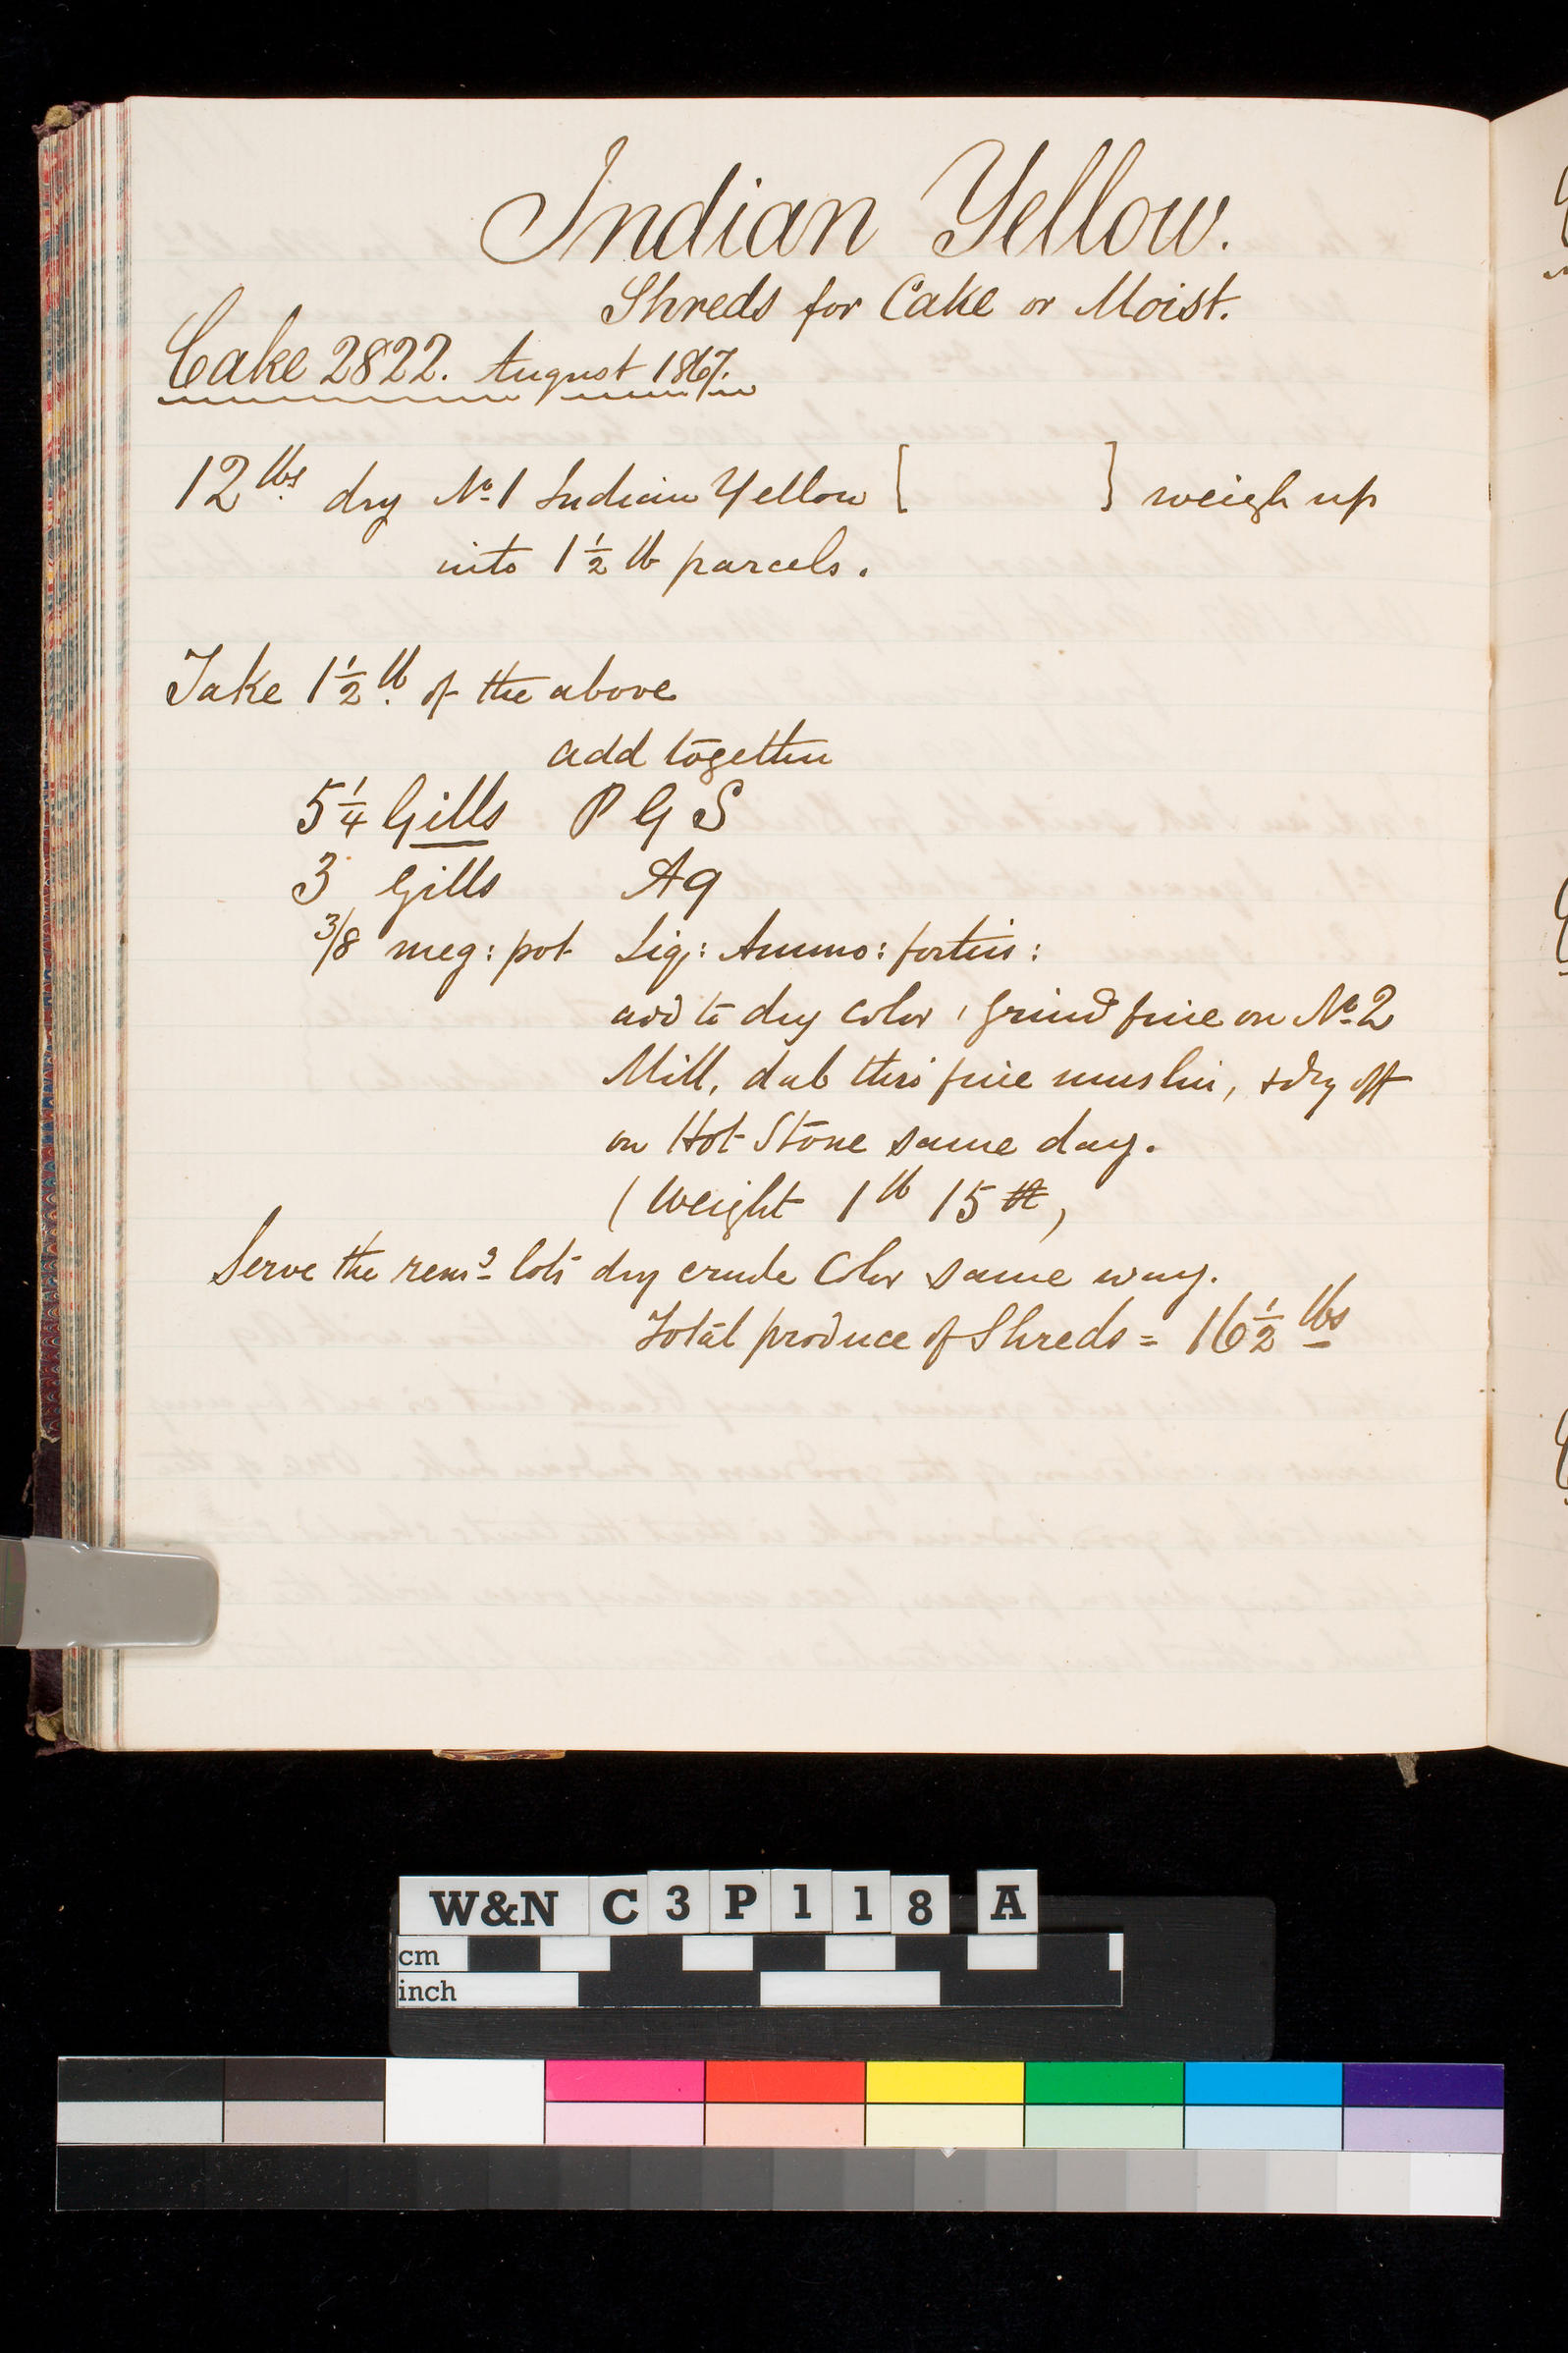 Indian Yellow.
Shreds for Cake or Moist.
Cake 2822. August 1867.
12 lbs dry No. 1 Indian Yellow [ ] weigh up
into 1 1/2 lb parcels.
Take 1 1/2 lb. of the above
add together
5 1/4 Gills P G S
3 Gills Aq
3/8 meg: pot Liq: Ammo: fortis:
add to dry color, grind fine on No. 2
Mill, dab thro' fine muslin, & dry off
on Hot Stone same day.
(Weight 1 lb 15
Serve the remg lots dry crude Color same way.
Total produce of Shreds = 16 1/2 lbs
W&N C3P118 A
cm
inch